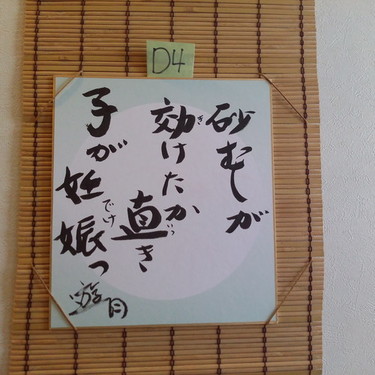 D4
砂むしが
効けたか
ぎ
直き
つ
子が妊娠っ
でけ
遊月